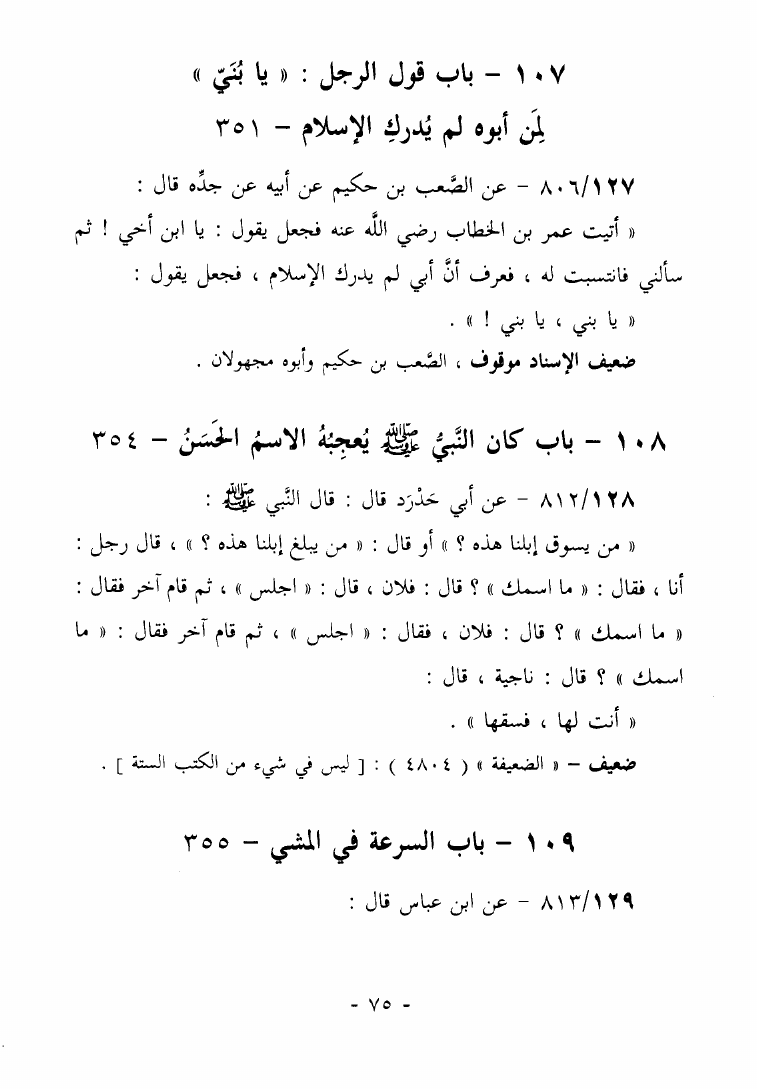 ١٠٧ – باب قول الرجل : « يا بُنَيّ »
لِمَن أبوه لم يُدركِ الإسلام – ٣٥١
٨٠٦/١٢٧ – عن الصَّعب بن حكيم عن أبيه عن جدِّه قال :
« أتيت عمر بن الخطاب رضي اللَّه عنه فجعل يقول : يا ابن أخي ! ثم
سألني فانتسبت له ، فعرف أنَّ أبي لم يدرك الإسلام ، فجعل يقول :
« يا بني ، يا بني ! » .
ضعيف الإسناد موقوف ، الصَّعب بن حكيم وأبوه مجهولان .
١٠٨ – باب كان النَّبيُّ ﷺ يُعجِبُهُ الاسمُ الحَسَنُ – ٣٥٤
٨١٢/١٢٨ – عن أبي حَدْرَد قال : قال النَّبي ﷺ :
« من يسوق إبلنا هذه ؟ » أو قال : « من يبلغ إبلنا هذه ؟ » ، قال رجل :
أنا ، فقال : « ما اسمك » ؟ قال : فلان ، قال : « اجلس » ، ثم قام آخر فقال :
« ما اسمك » ؟ قال : فلان ، فقال : « اجلس » ، ثم قام آخر فقال : « ما
اسمك » ؟ قال : ناجية ، قال :
« أنت لها ، فسقها » .
ضعيف – « الضعيفة » ( ٤٨٠٤ ) : [ ليس في شيء من الكتب الستة ] .
١٠٩ – باب السرعة في المشي – ٣٥٥
٨١٣/١٢٩ – عن ابن عباس قال :
- ٧٥ -